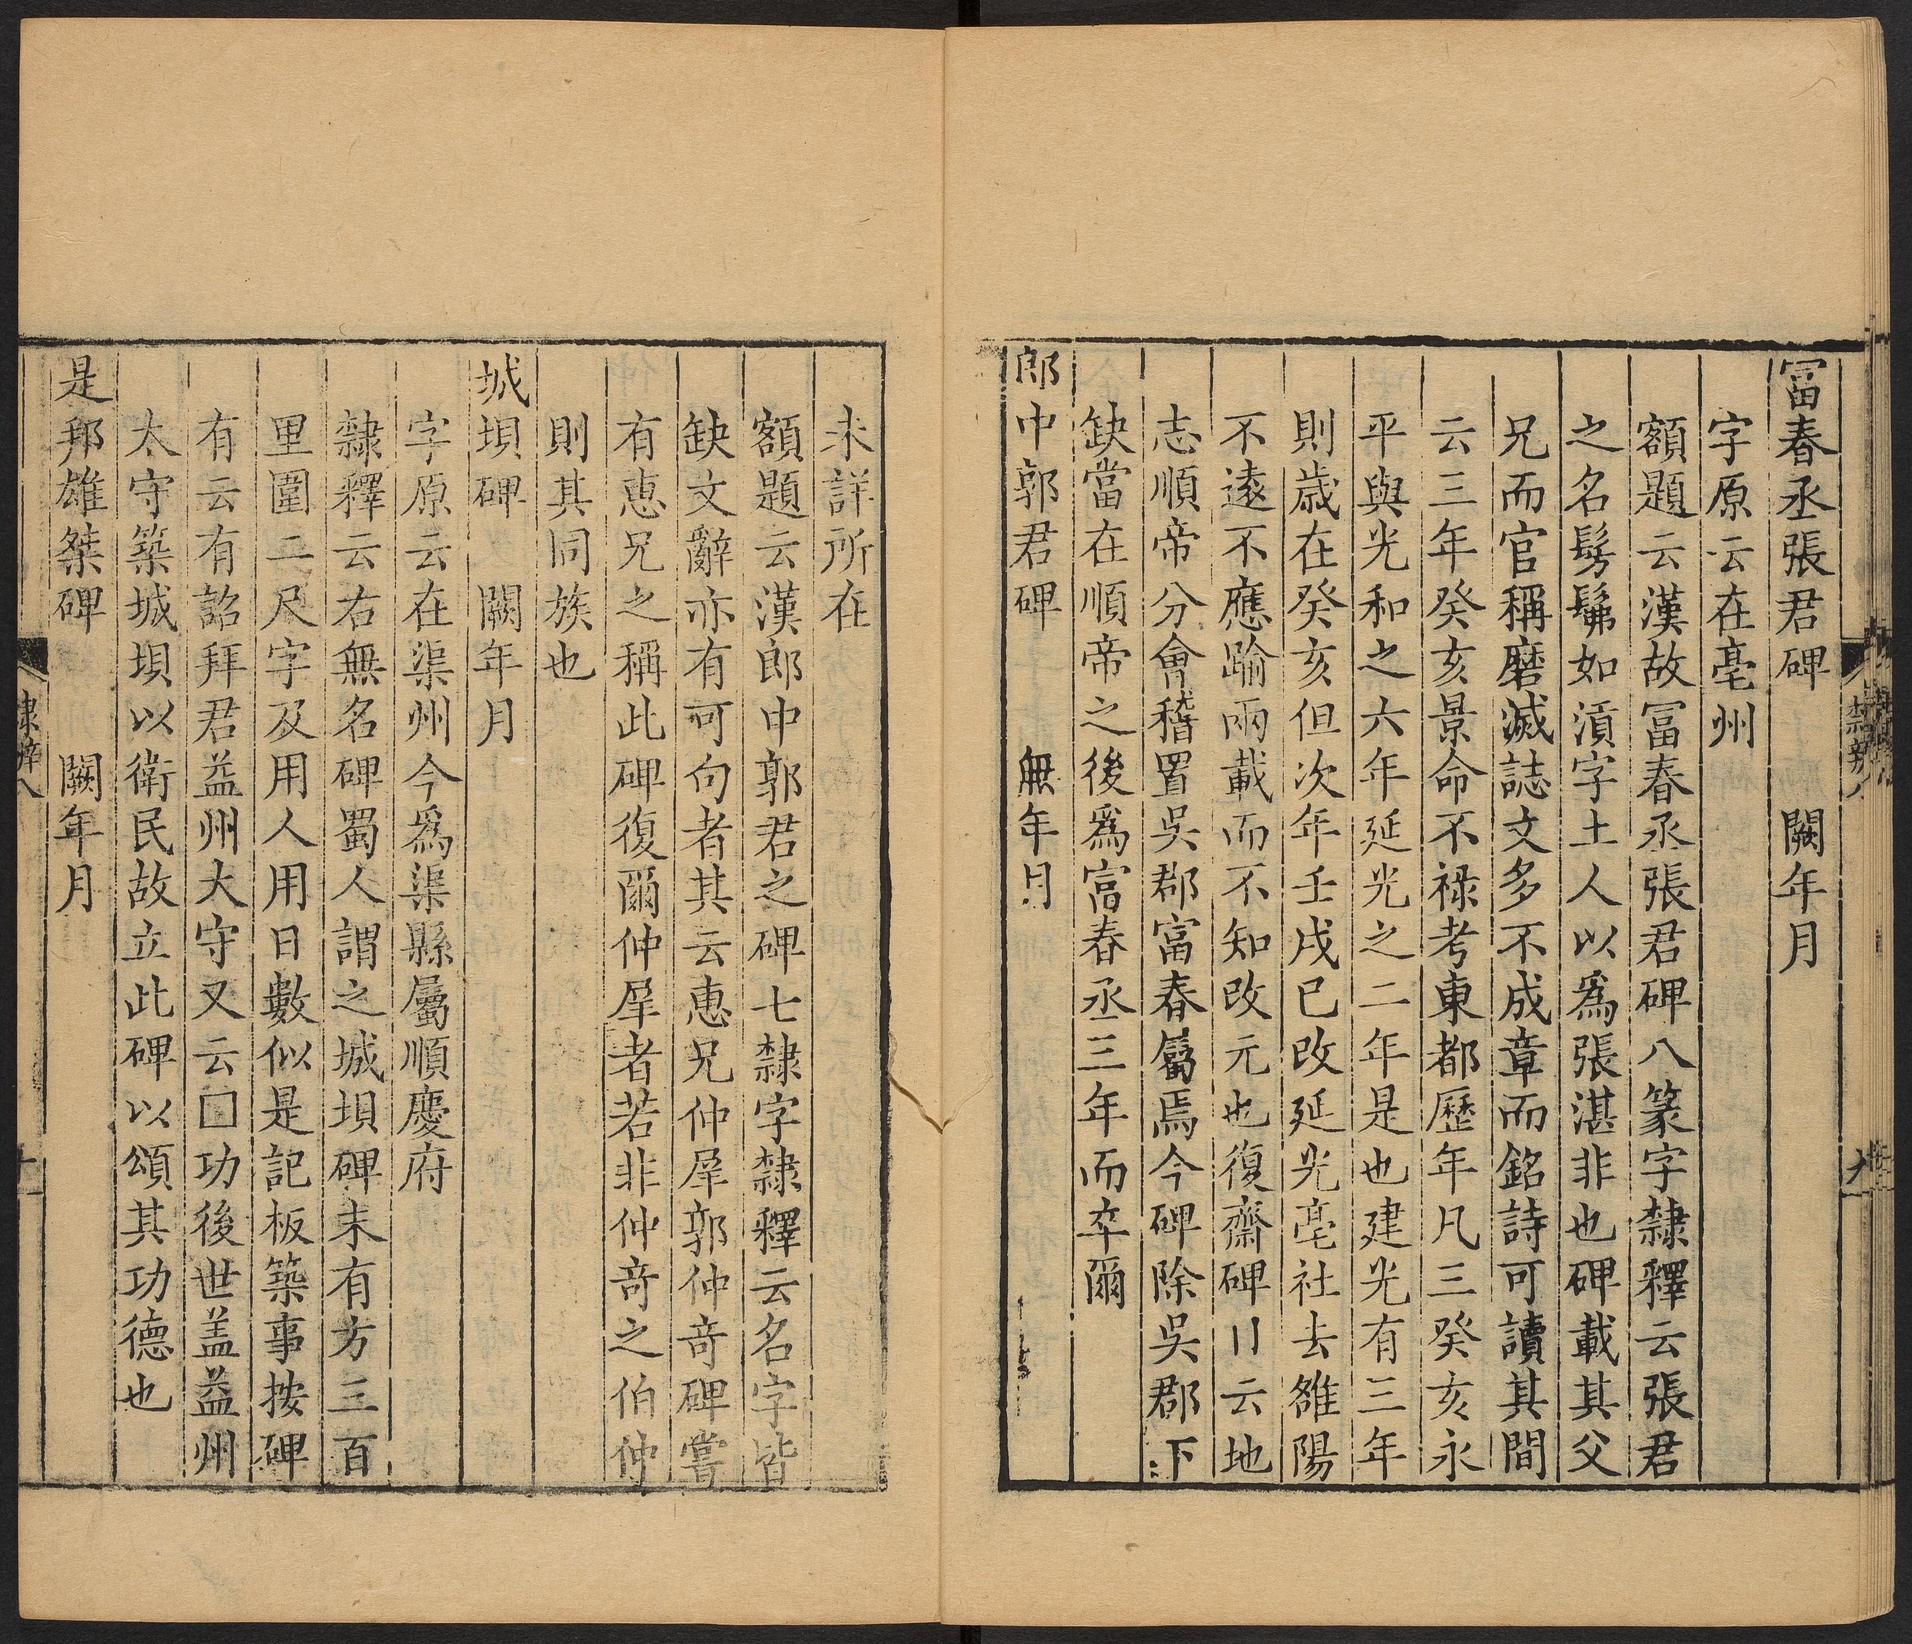 冨春丞張君碑　闕年月
字原云在亳州
額題云漢故冨春丞張君碑八篆字隸釋云張君
之名髣髴如湏字土人以爲張湛非也碑載其父
兄而官稱磨滅誌文多不成章而銘詩可讀其間
云三年癸亥景命不祿考東都歷年凡三癸亥永
平與光和之六年延光之二年是也建光有三年
則歳在癸亥但次年壬戌已改延光亳社去雒陽
不遠不應踰兩載而不知改元也復齋碑云地
志順帝分會稽置吳郡富春屬焉今碑除吳郡下
缺當在順帝之後爲富春丞三年而卒爾
郎中郭君碑　無年月
未詳所在
額題云漢郎中郭君之碑七隸字隸釋云名字皆
缺文辭亦有可句者其云惠兄仲犀郭仲奇碑嘗
有惠兄之稱此碑復爾仲犀者若非仲奇之伯仲
則其同族也
城垻碑　闕年月
字原云在渠州今爲渠縣屬順慶府
隸釋云右無名碑蜀人謂之城垻碑末有方三百
里圍二尺字及用人用日數似是記板築事按碑
有云有詔拜君益州大守又云□功後世盖益州
太守築城垻以衛民故立此碑以頌其功德也
是邦雄桀碑　闕年月